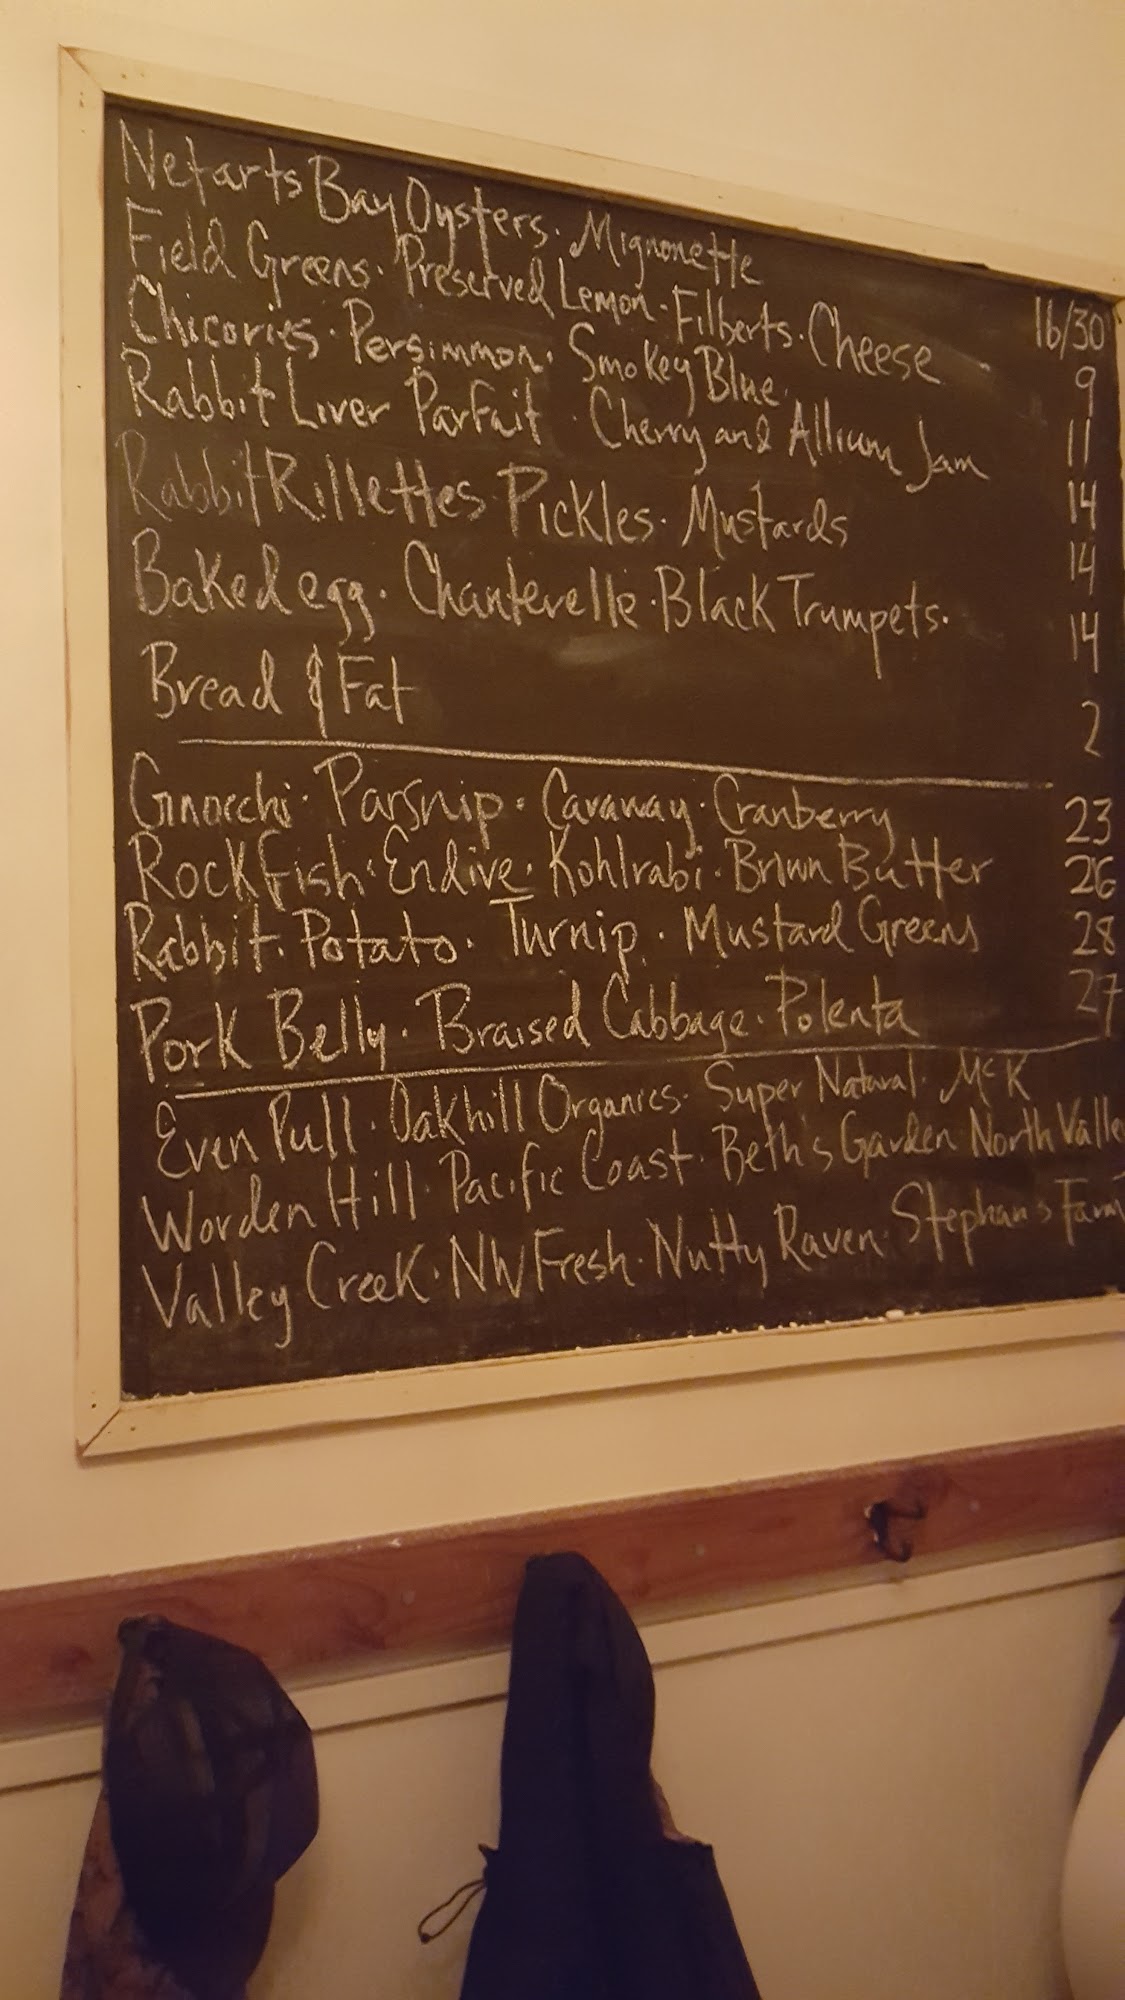 Netarts Bay Oysters. Mignonette 16/30
Field Greens. Preserved Lemon. Filberts. Cheese 9
Chicories. Persimmon. Smokey Blue. 11
Rabbit Liver Parfait. Cherry and Allium Jam 14
Rabbit Rillettes Pickles. Mustards 14
Baked egg. Chanterelle. Black Trumpets. 14
Bread & Fat 2
Gnocchi. Parsnip. Caraway. Cranberry 23
Rockfish. Endive. Kohlrabi. Brown Butter 26
Rabbit. Potato. Turnip. Mustard Greens 28
Pork Belly. Braised Cabbage. Polenta 27
Even Pull. Oakhill Organics. Super Natural. McK
Worden Hill. Pacific Coast. Beth's Garden. North Valle
Valley Creek. NW Fresh. Nutty Raven. Stephan's Farm